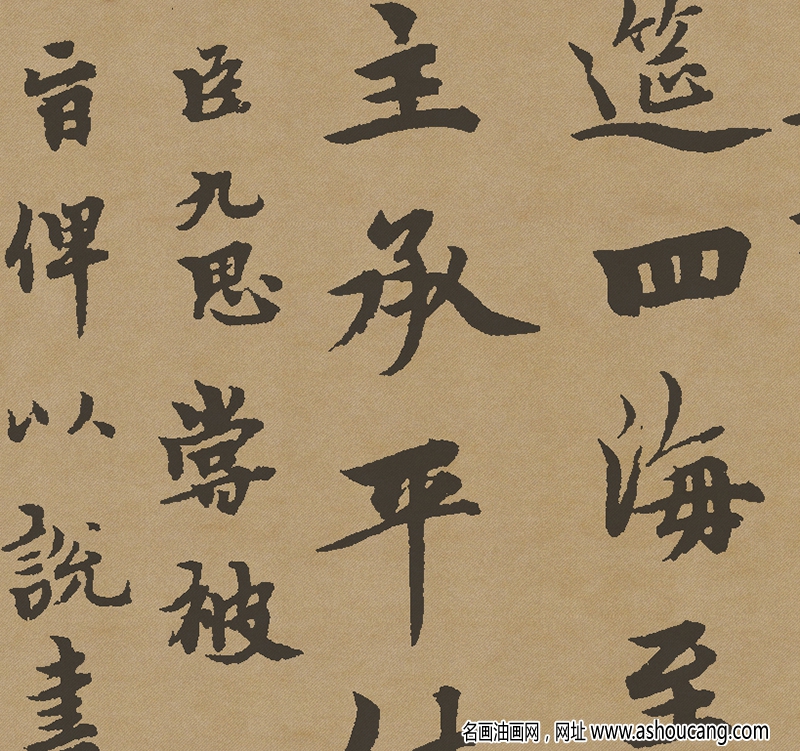 筵四海至
主承平
臣九思嘗被
旨俾以說書
名画油画网，网址 www.ashoucang.com